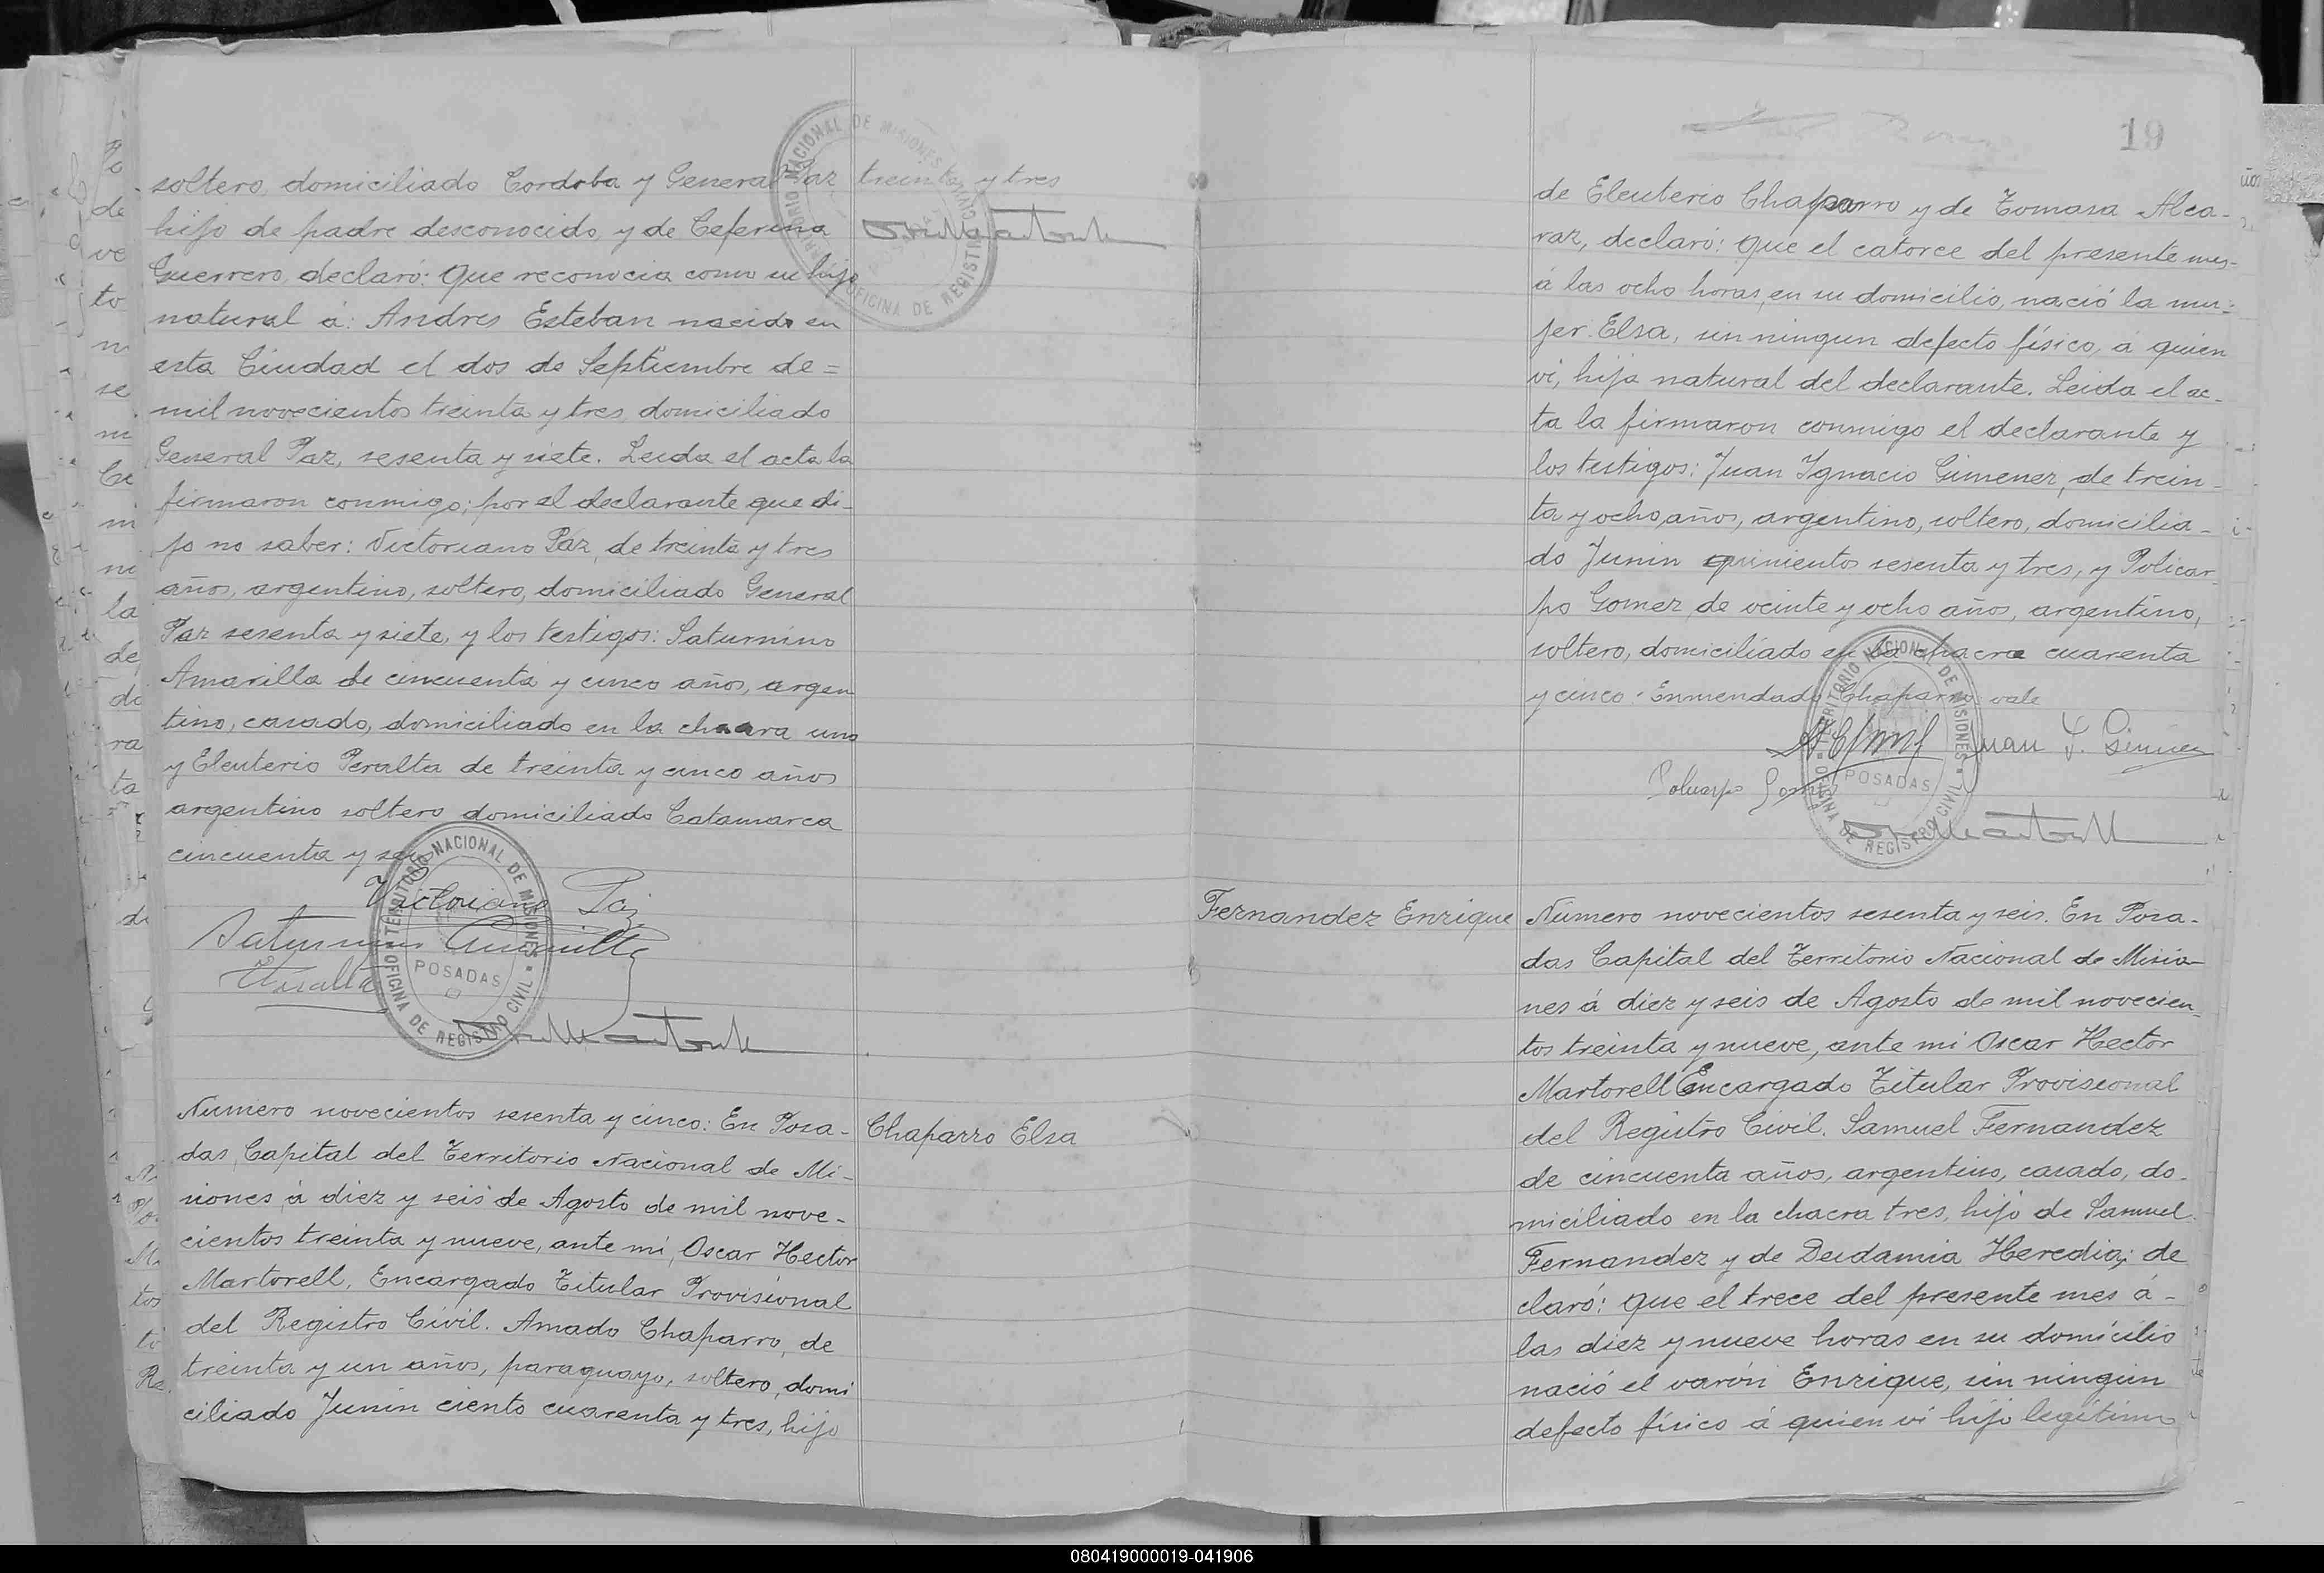 soltero, domiciliado Cordoba y General Paz
hijo de padre desconocido, y de Ceferina
Guerrero, declaró: Que reconocia como su hijo
natural á: Andres Esteban nacido en
esta Ciudad el dos de Septiembre de=
mil novecientos treinta y tres, domiciliado
General Paz, sesenta y siete. Leida el acta la
firmaron conmigo; por el declarante que di-
jo no saber: Victoriano Paz, de treinta y tres
años, argentino, soltero, domiciliado General
Paz sesenta y siete, y los testigos: Saturnino
Amarilla de cincuenta y cinco años, argen
tino, casado, domiciliado en la chacra uno
y Eleuterio Peralta de treinta y cinco años
argentino soltero domiciliado Catamarca
cincuenta y seis
Victoriano Paz
Saturnino Amarilla
TERRITORIO NACIONAL DE MISIONES
POSADAS
OFICINA DE REGISTRO CIVIL
treinta y tres
TERRITORIO NACIONAL DE MISIONES
OFICINA DE REGISTRO CIVIL
Número novecientos sesenta y cinco: En Posa-
das, Capital del Territorio Nacional de Mi-
siones, á diez y seis de Agosto de mil nove-
cientos treinta y nueve, ante mi, Oscar Hector
Martorell, Encargado Titular Provisional
del Registro Civil. Amado Chaparro, de
treinta y un años, paraguayo, soltero, domi
ciliado Junin ciento cuarenta y tres, hijo
Chaparro Elsa
19
de Eleuterio Chaparro y de Tomasa Alca-
raz, declaró: Que el catorce del presente mes-
á las ocho horas, en su domicilio, nació la mu-
jer Elsa, sin ningun defecto físico, á quien
vi, hija natural del declarante. Leida el ac-
ta la firmaron conmigo el declarante y
los testigos: Juan Ignacio Gimenez, de trein-
ta y ocho años, argentino, soltero, domicilia-
do Junin quinientos sesenta y tres, y Policar-
po Gomez, de veinte y ocho años, argentino,
soltero, domiciliado en la chacra cuarenta
y cinco. Enmendado Chaparro: vale
Juan I. Gimenez
Policarpo Gomez
TERRITORIO NACIONAL DE MISIONES
POSADAS
OFICINA DE REGISTRO CIVIL
Fernandez Enrique
Número novecientos sesenta y seis. En Posa-
das Capital del Territorio Nacional de Misio-
nes á diez y seis de Agosto de mil novecien-
tos treinta y nueve, ante mi Oscar Hector
Martorell Encargado Titular Provisional
del Registro Civil. Samuel Fernandez
de cincuenta años, argentino, casado, do-
miciliado en la chacra tres, hijo de Samuel
Fernandez y de Deidamia Heredia; de
claró: Que el trece del presente mes á-
las diez y nueve horas en su domicilio
nació el varón Enrique, sin ningun
defecto físico á quien vi hijo legítimo
080419000019-041906